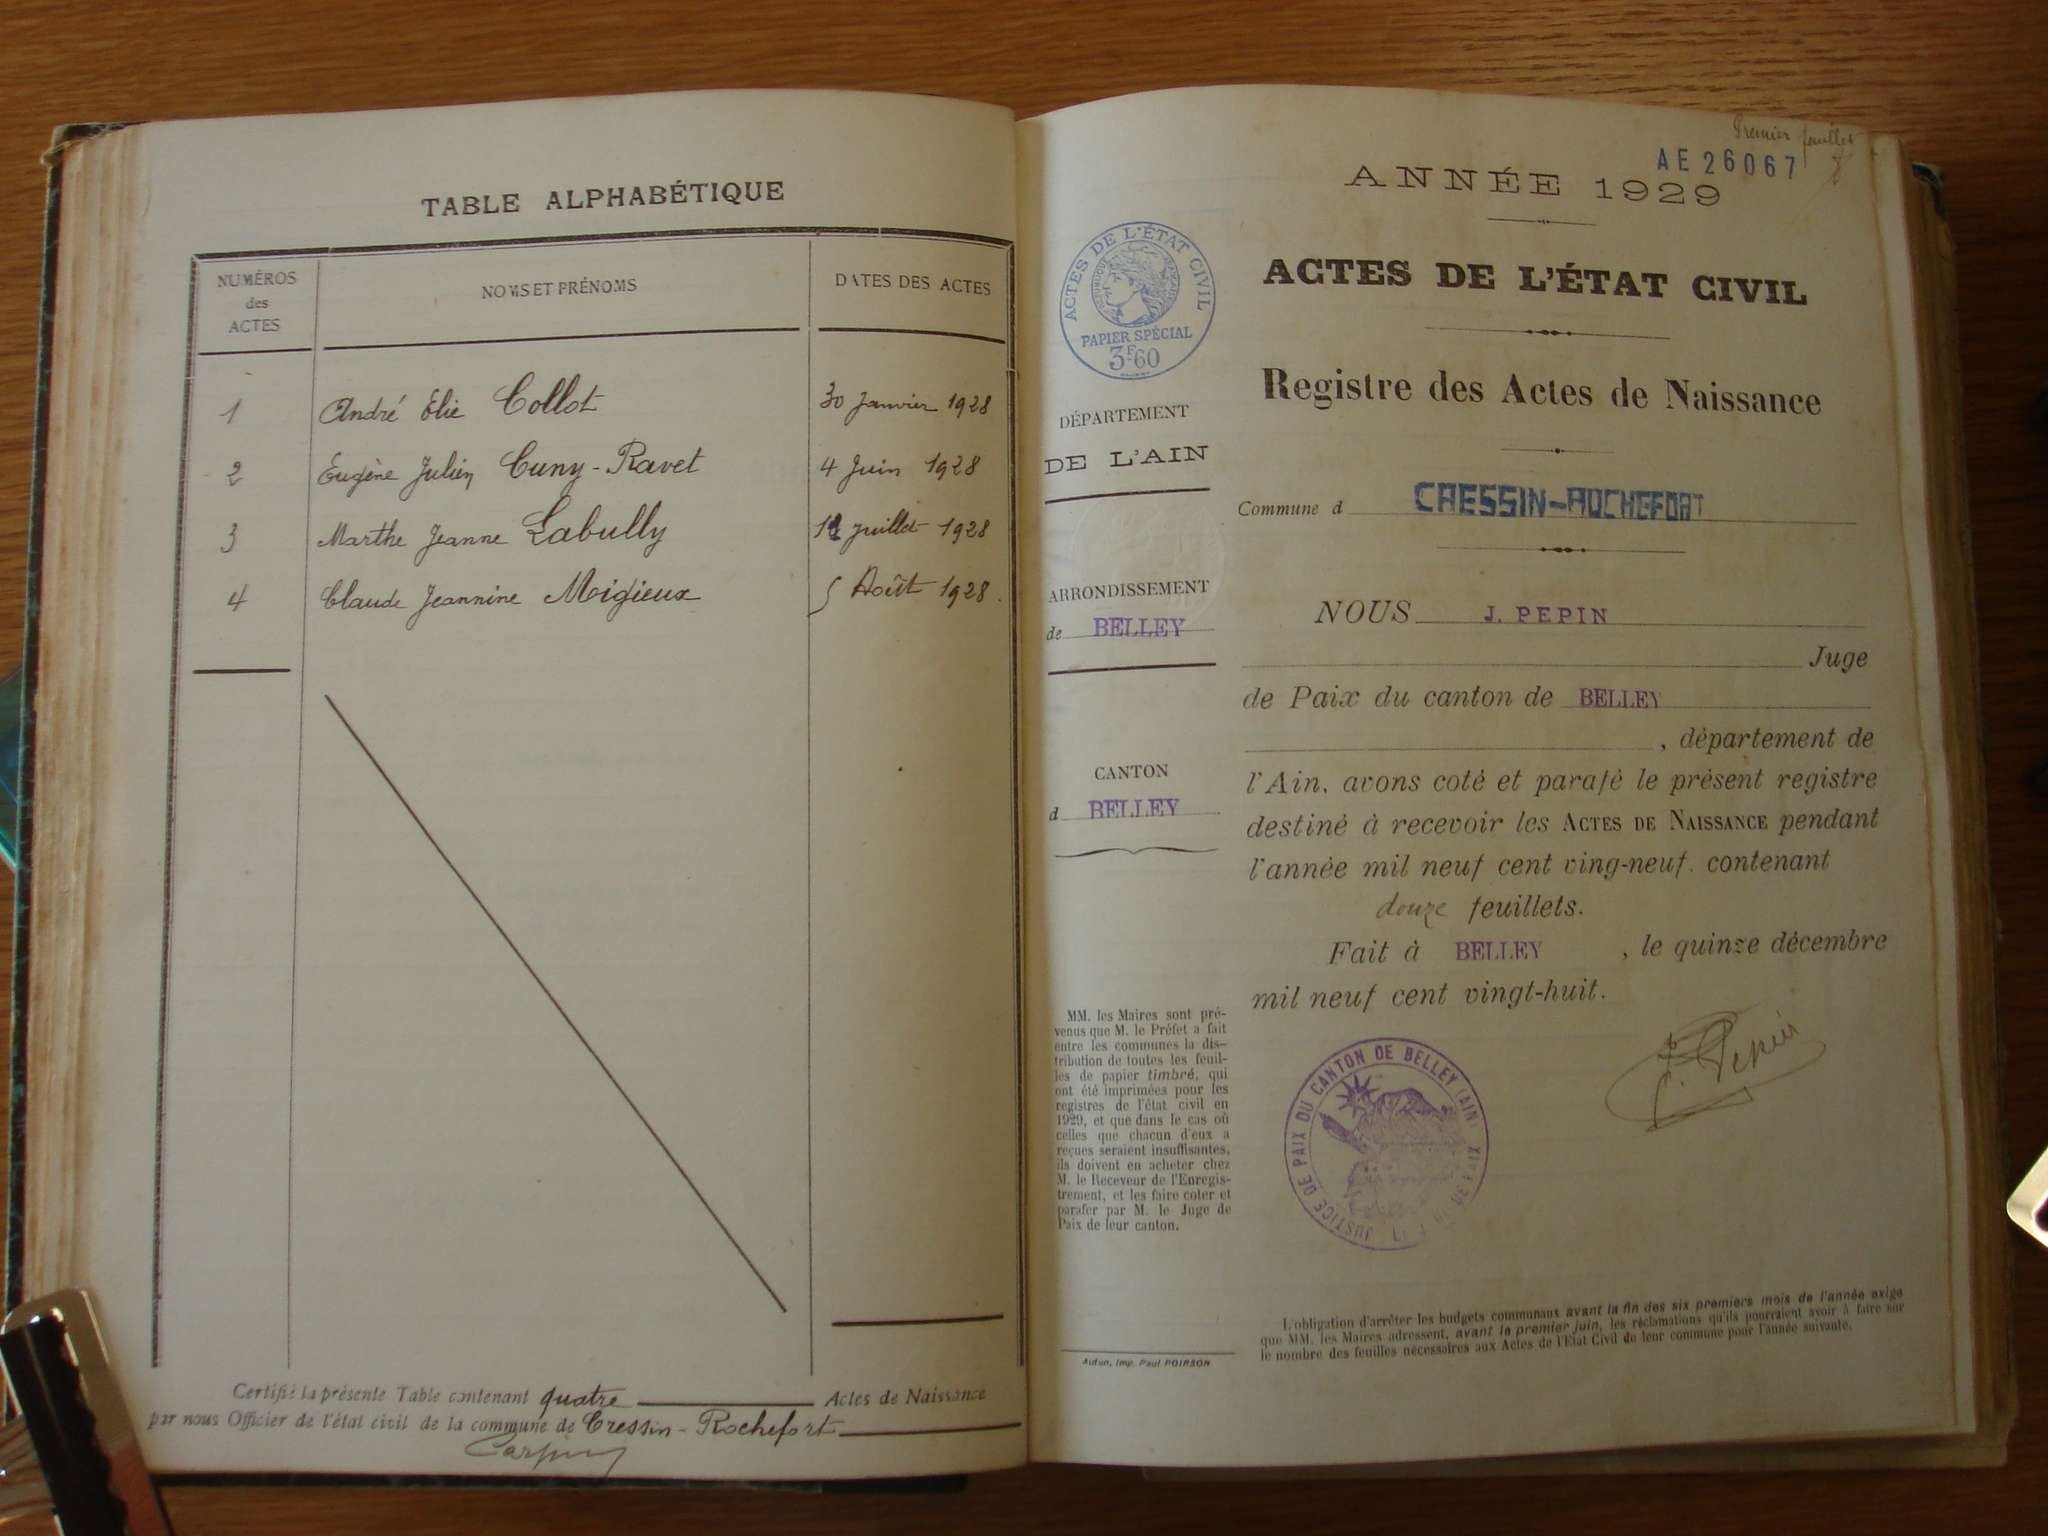 TABLE ALPHABÉTIQUE
NUMÉROS
des
ACTES
NOMS ET PRÉNOMS
DATES DES ACTES
1 André Elie Collot 30 Janvier 1928
2 Eugène Julien Cuny-Ravet 4 Juin 1928
3 Marthe Jeanne Labully juillet 1928
4 Claude Jeannine Migieux 5 Août 1928.
Certifié la présente Table contenant quatre Actes de Naissance
par nous Officier de l'état civil de la commune de Cressin-Rochefort
Premier feuillet
AE 26067
ANNÉE 1929
ACTES DE L'ÉTAT CIVIL
Registre des Actes de Naissance
Commune d CRESSIN-ROCHEFORT
NOUS J. PEPIN
Juge
de Paix du canton de BELLEY
, département de
l'Ain, avons coté et parafé le présent registre
destiné à recevoir les ACTES DE NAISSANCE pendant
l'année mil neuf cent ving-neuf. contenant
douze feuillets.
Fait à BELLEY , le quinze décembre
mil neuf cent vingt-huit.
J. Pepin
JUSTICE DE PAIX DU CANTON DE BELLEY (AIN)
L'obligation d'arrêter les budgets communaux avant la fin des six premiers mois de l'année exige
que MM. les Maires adressent, avant le premier juin, les réclamations qu'ils pourraient avoir à faire sur
le nombre des feuilles nécessaires aux Actes de l'Etat Civil de leur commune pour l'année suivante.
ACTES DE L'ÉTAT CIVIL
RÉPUBLIQUE FRANÇAISE
PAPIER SPÉCIAL
3F60
DÉPARTEMENT
DE L'AIN
ARRONDISSEMENT
de BELLEY
CANTON
d BELLEY
MM. les Maires sont pré-
venus que M. le Préfet a fait
entre les communes la dis-
tribution de toutes les feuil-
les de papier timbré, qui
ont été imprimées pour les
registres de l'état civil en
1929, et que dans le cas où
celles que chacun d'eux a
reçues seraient insuffisantes,
ils doivent en acheter chez
M. le Receveur de l'Enregis-
trement, et les faire coter et
parafer par M. le Juge de
Paix de leur canton.
Autun, Imp. Paul POIRSON